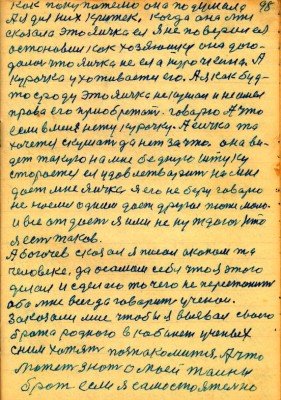 как покупателю она подумала 98
А я для них критек, когда она мне
сказала это яичка ел я не поверил ея
остановил как хозяюшку она дога-
далас что яичка не ела а курочкина. А
курочка ухоживает его. А я как буд-
то сроду это яичка не кушал и не имел
права его приобретат. говарю А что
если вминя нету курочку. А яичка та
хочется скушат да нет за что. она ви-
дет такую на мне бедную штуку
старается ея удовлетварит на мня
дает мне яичка я его не беру говарю
не но ей один дает другая
и все отдает я ими не нуждаюс кто
я ест таков.
А богочев сказал я писал о каком та
человеке, да осылал себя что я этого
делал и сделаю то чего не перестанит
обо мне всегда говарит ученом.
Заказали мне чтобы я вызвал своего
брата родного в кабинет ученых
сним хотят познакомится. А что
может знат о моей тайны
брат если я самостоятелно